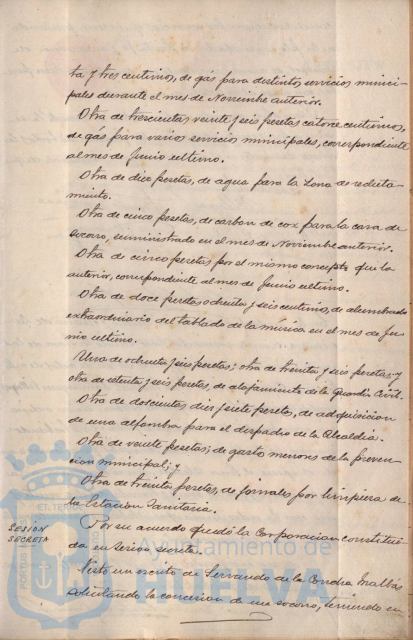 ta y tres centimos, de gás para distintos servicios munici-
pales durante el mes de Noviembre anterior.
Otra de trescientas veinte y seis pesetas catorce centimos,
de gás para varios servicios municipales, correspondiente
al mes de Junio ultimo.
Otra de diez pesetas, de agua para la Zona de recluta-
miento.
Otra de cinco pesetas, de carbon de cox para la casa de
socorro, suministrado en el mes de Noviembre anterior.
Otra de cinco pesetas por el mismo concepto que la
anterior, correspondiente al mes de Junio ultimo.
Otra de doce pesetas ochenta y seis centimos, de alumbrado
extraordinario del tablado de la música en el mes de Ju-
nio ultimo.
Una de ochenta y seis pesetas; otra de treinta y seis pesetas y
otra de setenta y seis pesetas, de alojamiento de la Guardia Civil.
Otra de doscientas diez y siete pesetas, de adquisicion
de una alfombra para el despacho de la Alcaldia.
Otra de veinte pesetas, de gastos menores de la preven-
cion municipal; y
Otra de treinta pesetas, de jornales por limpieza de
la Estacion Sanitaria.
SESIÓN
SECRETA
Por su acuerdo quedó la Corporacion constitui-
da en sesion secreta.
Visto un escrito de Servando de la Concha
solicitando la concesion de un socorro, teniendo en
Ayuntamiento de
HUELVA